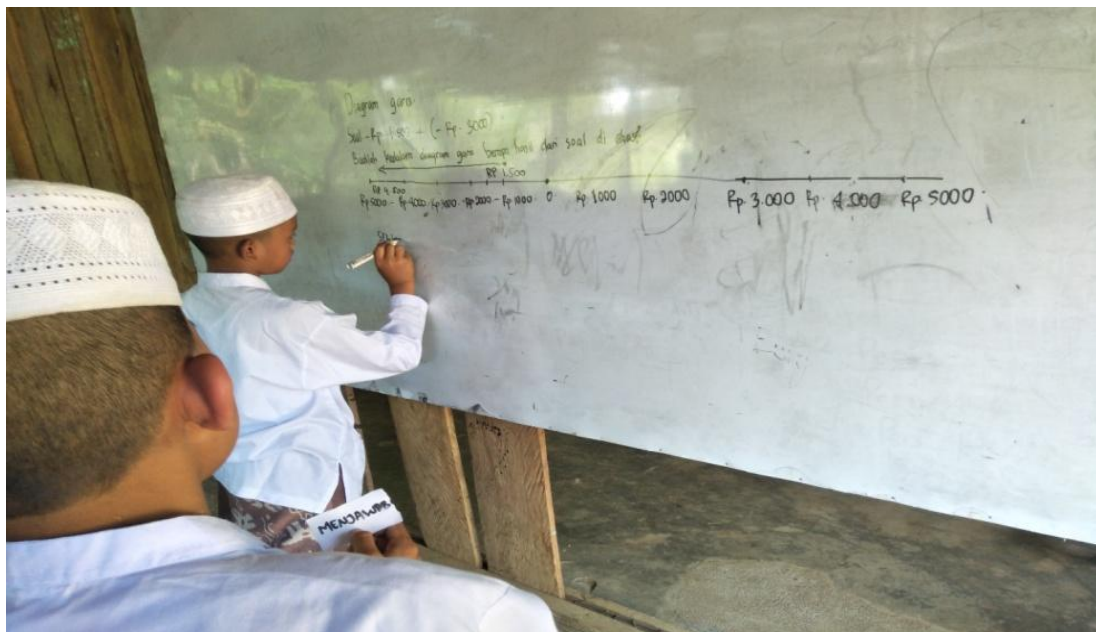 Diagram garis
Soal - Rp. 1.500 + (- Rp. 3000)
Buatlah kedalam diagram garis berapa hasil dari soal di atas?
RP 1.500
RP 4.500
Rp 5000 - Rp 4000 - Rp 3000 - Rp 2000 - Rp 1000 0 Rp. 1000 Rp. 2000 Rp. 3.000 Rp. 4.000 Rp. 5000
MENJAWAB